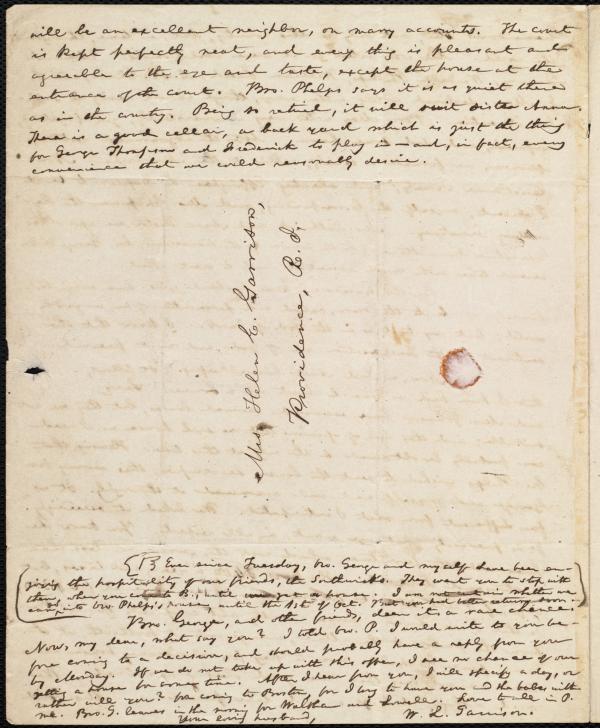 will be an excellent neighbor, on many accounts. The court
is kept perfectly neat, and every thing is pleasant and
agreeable to the eye and taste, except the house at the
entrance of the court. Bro. Phelps says it is as quiet there
as in the country. Being so retired, it will suit sister Anna.
There is a good cellar, a back yard which is just the thing
for George Thompson and Frederick to play in—and, in fact, every
convenience that we could reasonably desire.
Mrs. Helen E. Garrison,
Providence, R. I.
Ever since Tuesday, bro. George and myself have been en-
joying the hospitality of our friends, the Southwicks. They want you to stop with
them, when you come to B., until we get a house. I am not certain whether we
can go into bro. Phelps's house, until the 1st of Oct. But you had better return soon.
Bro. George, and other friends, deem it a rare chance.
Now, my dear, what say you? I told bro. P. I would write to you be-
fore coming to a decision, and should probably have a reply from you
by Monday. If we do not take up with this offer, I see no chance of our
getting a house for some time. After I hear from you, I will specify a day, or
rather will you? for coming to Boston, for I long to have you and the babes with
me. Bro. G. leaves in the morning for Waltham and Lowell. Love to all in P.
Your loving husband, W. L. Garrison.